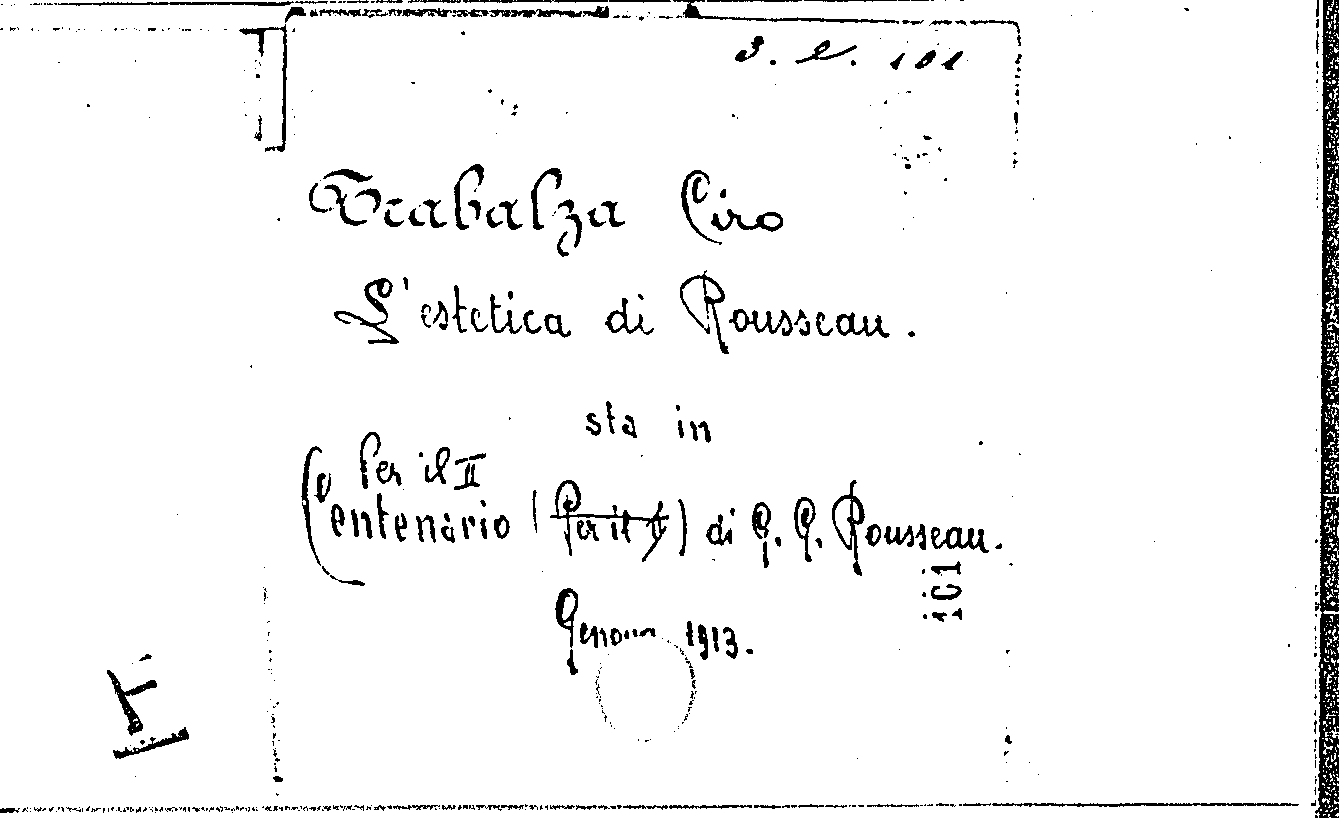 3. C. 101
Trabalza Ciro
L'estetica di Rousseau.
sta in
Per il II
Centenario (Per il I) di G. G. Rousseau.
101
Genova 1913.